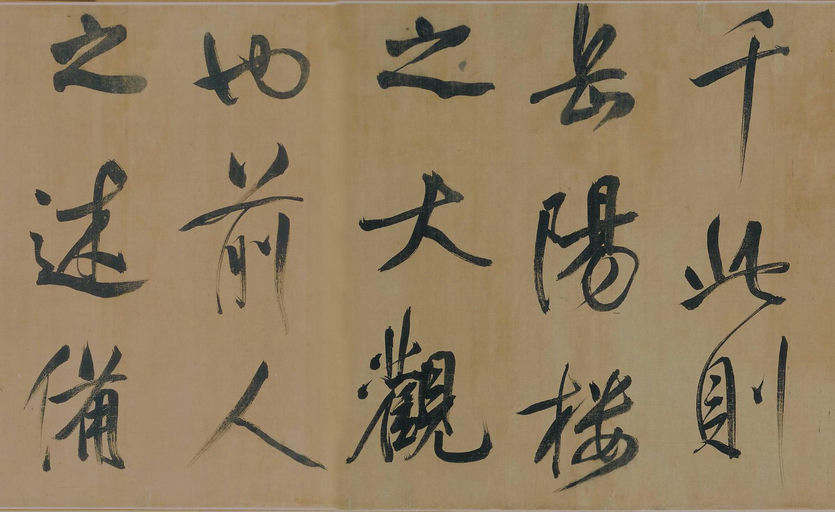 千此則
岳陽楼
之大觀
也前人
之述備